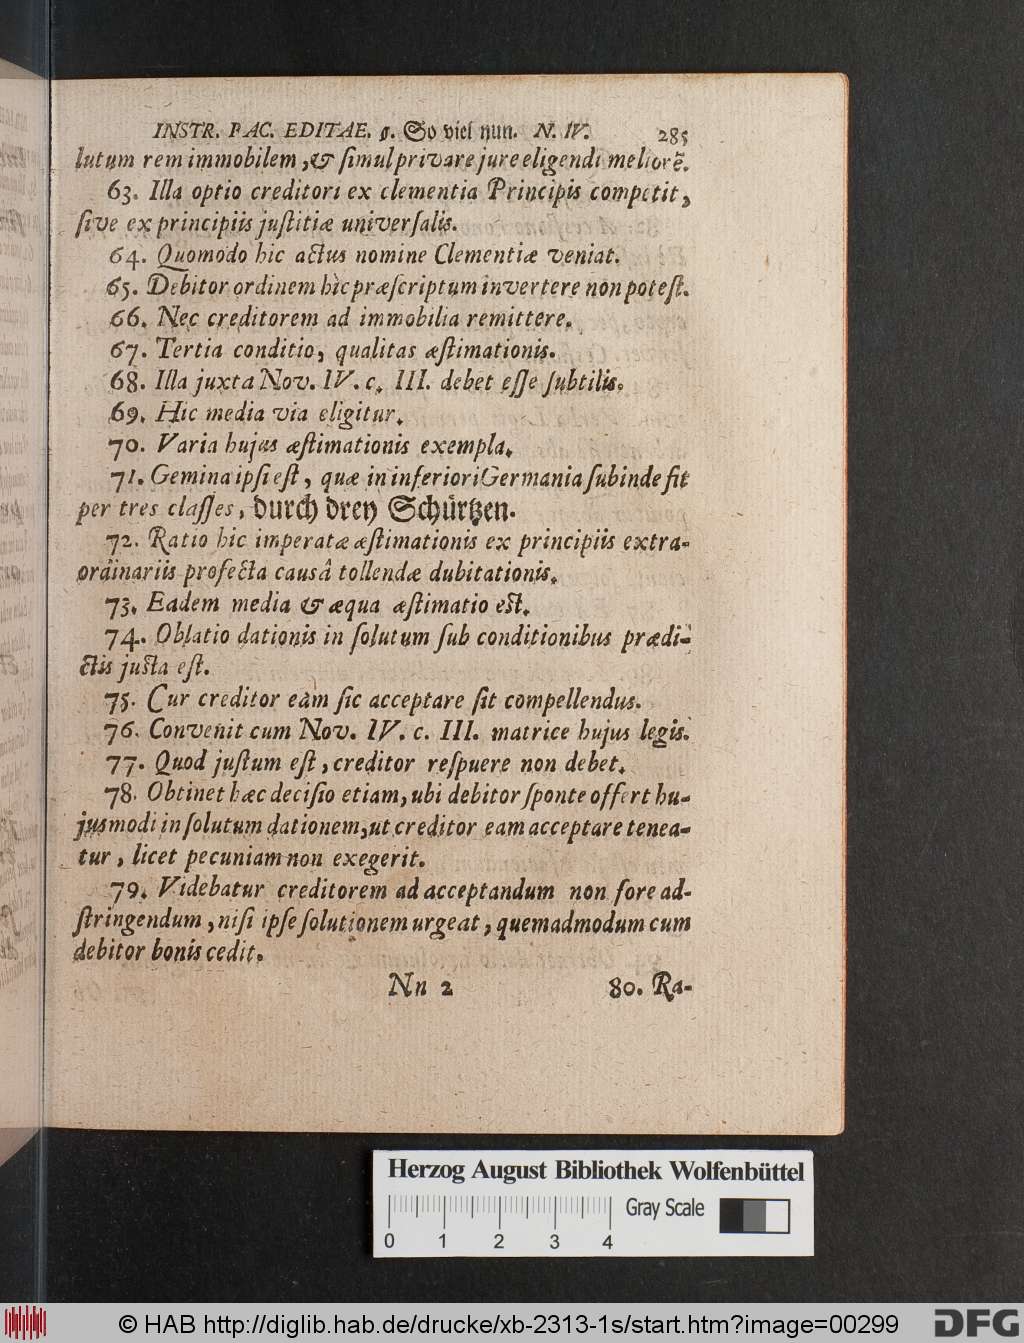 INSTR. PAC. EDITAE. §. So viel nun. N. IV. 285
lutum rem immobilem, & ſimul privare jure eligendi meliorē.
63. Illa optio creditori ex clementia Principis competit,
ſive ex principiis juſtitiæ univerſalis.
64. Quomodo hic actus nomine Clementiæ veniat.
65. Debitor ordinem hìc præſcriptum invertere non poteſt.
66. Nec creditorem ad immobilia remittere.
67. Tertia conditio, qualitas æſtimationis.
68. Illa juxta Nov. IV. c. III. debet eſſe ſubtilis.
69. Hic media via eligitur.
70. Varia hujus æſtimationis exempla.
71. Gemina ipſi eſt, quæ in inferiori Germania ſubinde fit
per tres claſſes, durch drey Schürtzen.
72. Ratio hic imperatæ æſtimationis ex principiis extra-
ordinariis profecta causâ tollendæ dubitationis.
73. Eadem media & æqua æſtimatio est.
74. Oblatio dationis in ſolutum ſub conditionibus prædi-
ctis justa eſt.
75. Cur creditor eam ſic acceptare ſit compellendus.
76. Convenit cum Nov. IV. c. III. matrice hujus legis.
77. Quod juſtum eſt, creditor reſpuere non debet.
78. Obtinet hæc deciſio etiam, ubi debitor ſponte offert hu-
jusmodi in ſolutum dationem, ut creditor eam acceptare tenea-
tur, licet pecuniam non exegerit.
79. Videbatur creditorem ad acceptandum non fore ad-
ſtringendum, niſi ipſe ſolutionem urgeat, quemadmodum cum
debitor bonis cedit.
Nn 2 80. Ra-
Herzog August Bibliothek Wolfenbüttel
Gray Scale
0 1 2 3 4
© HAB http://diglib.hab.de/drucke/xb-2313-1s/start.htm?image=00299
DFG